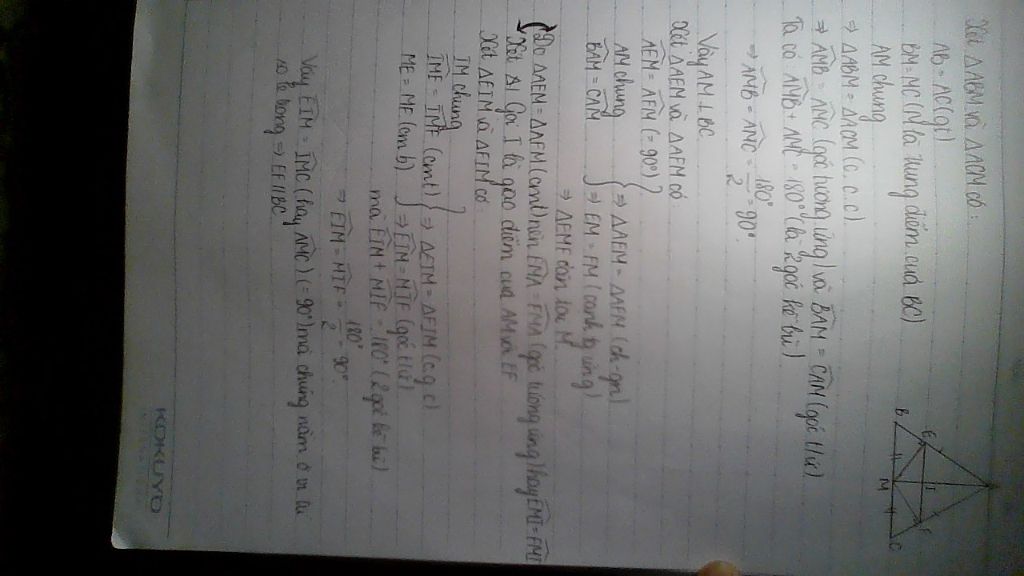 Xét ΔABM và ΔACM có:
AB = AC (gt)
BM = MC (M là trung điểm của BC)
AM chung
⇒ ΔABM = ΔACM (c.c.c)
⇒ AMB = AMC (góc tương ứng) và BAM = CAM (góc t/ứ)
Ta có AMB + AMC = 180° (là 2 góc kề bù)
⇒ AMB = AMC = 180°/2 = 90°.
Vậy AM ⊥ BC
Xét ΔAEM và ΔAFM có:
AEM = AFM (= 90°)
AM chung } ⇒ ΔAEM = ΔAFM (ch-gn)
BAM = CAM } ⇒ EM = FM (cạnh t/ứng)
⇒ ΔEMF cân tại M
Do ΔAEM = ΔAFM (cmt) nên EMA = FMA (góc tương ứng) hay EMI = FMI
Gọi I là giao điểm của AM và EF
Xét ΔEIM và ΔFIM có:
IM chung
IME = IMF (cmt) } ⇒ ΔEIM = ΔFIM (c.g.c)
ME = MF (cm b) } ⇒ EIM = MIF (góc t/ứ)
mà EIM + MIF = 180° (2 góc kề bù)
⇒ EIM = MIF = 180°/2 = 90°.
Vậy EIM = IMC (hay AMC) (= 90°) mà chúng nằm ở vị trí
so le trong ⇒ EF // BC
A
E
I
F
B
M
C
KOKUYO